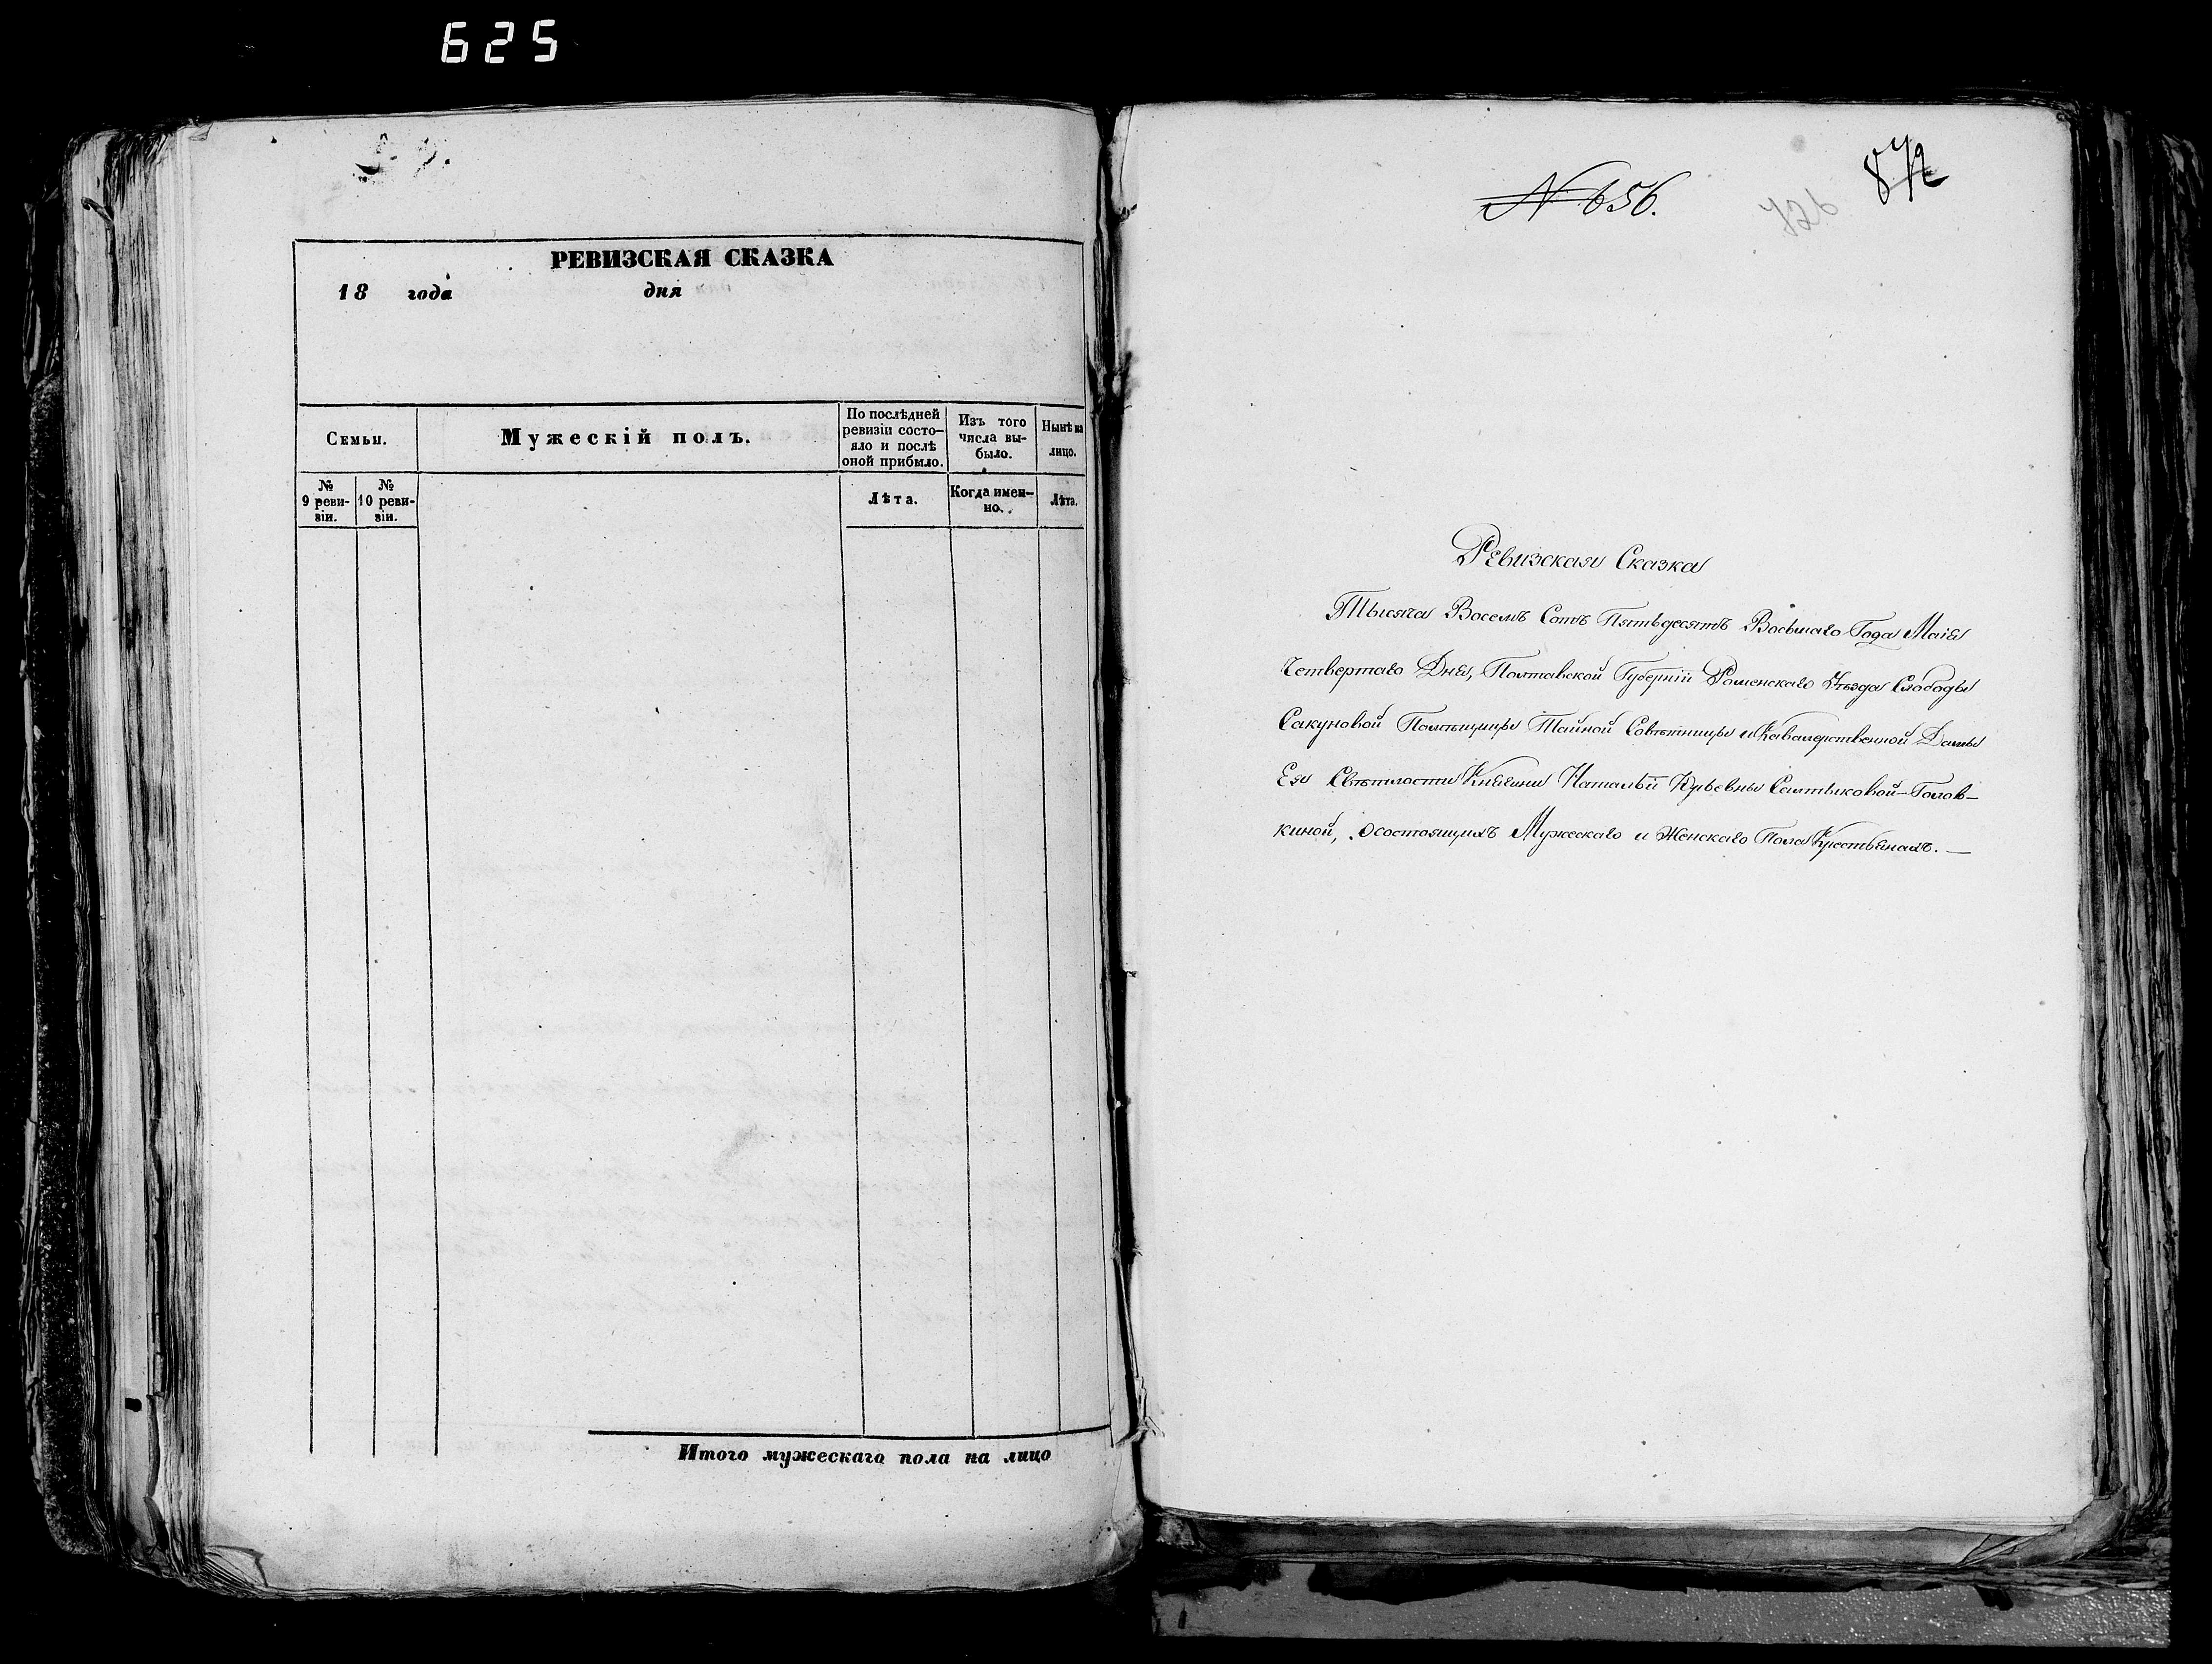 625
РЕВИЗСКАЯ СКАЗКА
18 года дня
Семьи.
Мужескій полъ.
По послѣдней
ревизіи состо-
яло и послѣ
оной прибыло.
Изъ того
числа вы-
было.
Нынѣ на
лицо.
№
9 реви-
зіи.
№
10 реви-
зіи.
Лѣта.
Когда имен-
но.
Лѣта.
Итого мужескаго пола на лицо
N 656.
726
872
Ревизская Сказка
Тысяча Восемъ Сотъ Пятьдесятъ Восьмаго Года Маія
Четвертаго Дня, Полтавской Губерніи Роменскаго Уѣзда Слободы
Сакуновой Помѣщицы Тайной Совѣтницы и Кавалерственной Дамы
Ея Свѣтлости Княгини Наталіи Юрьевны Салтыковой-Голов-
киной, о состоящихъ Мужескаго и Женскаго Пола Крестьянахъ. —